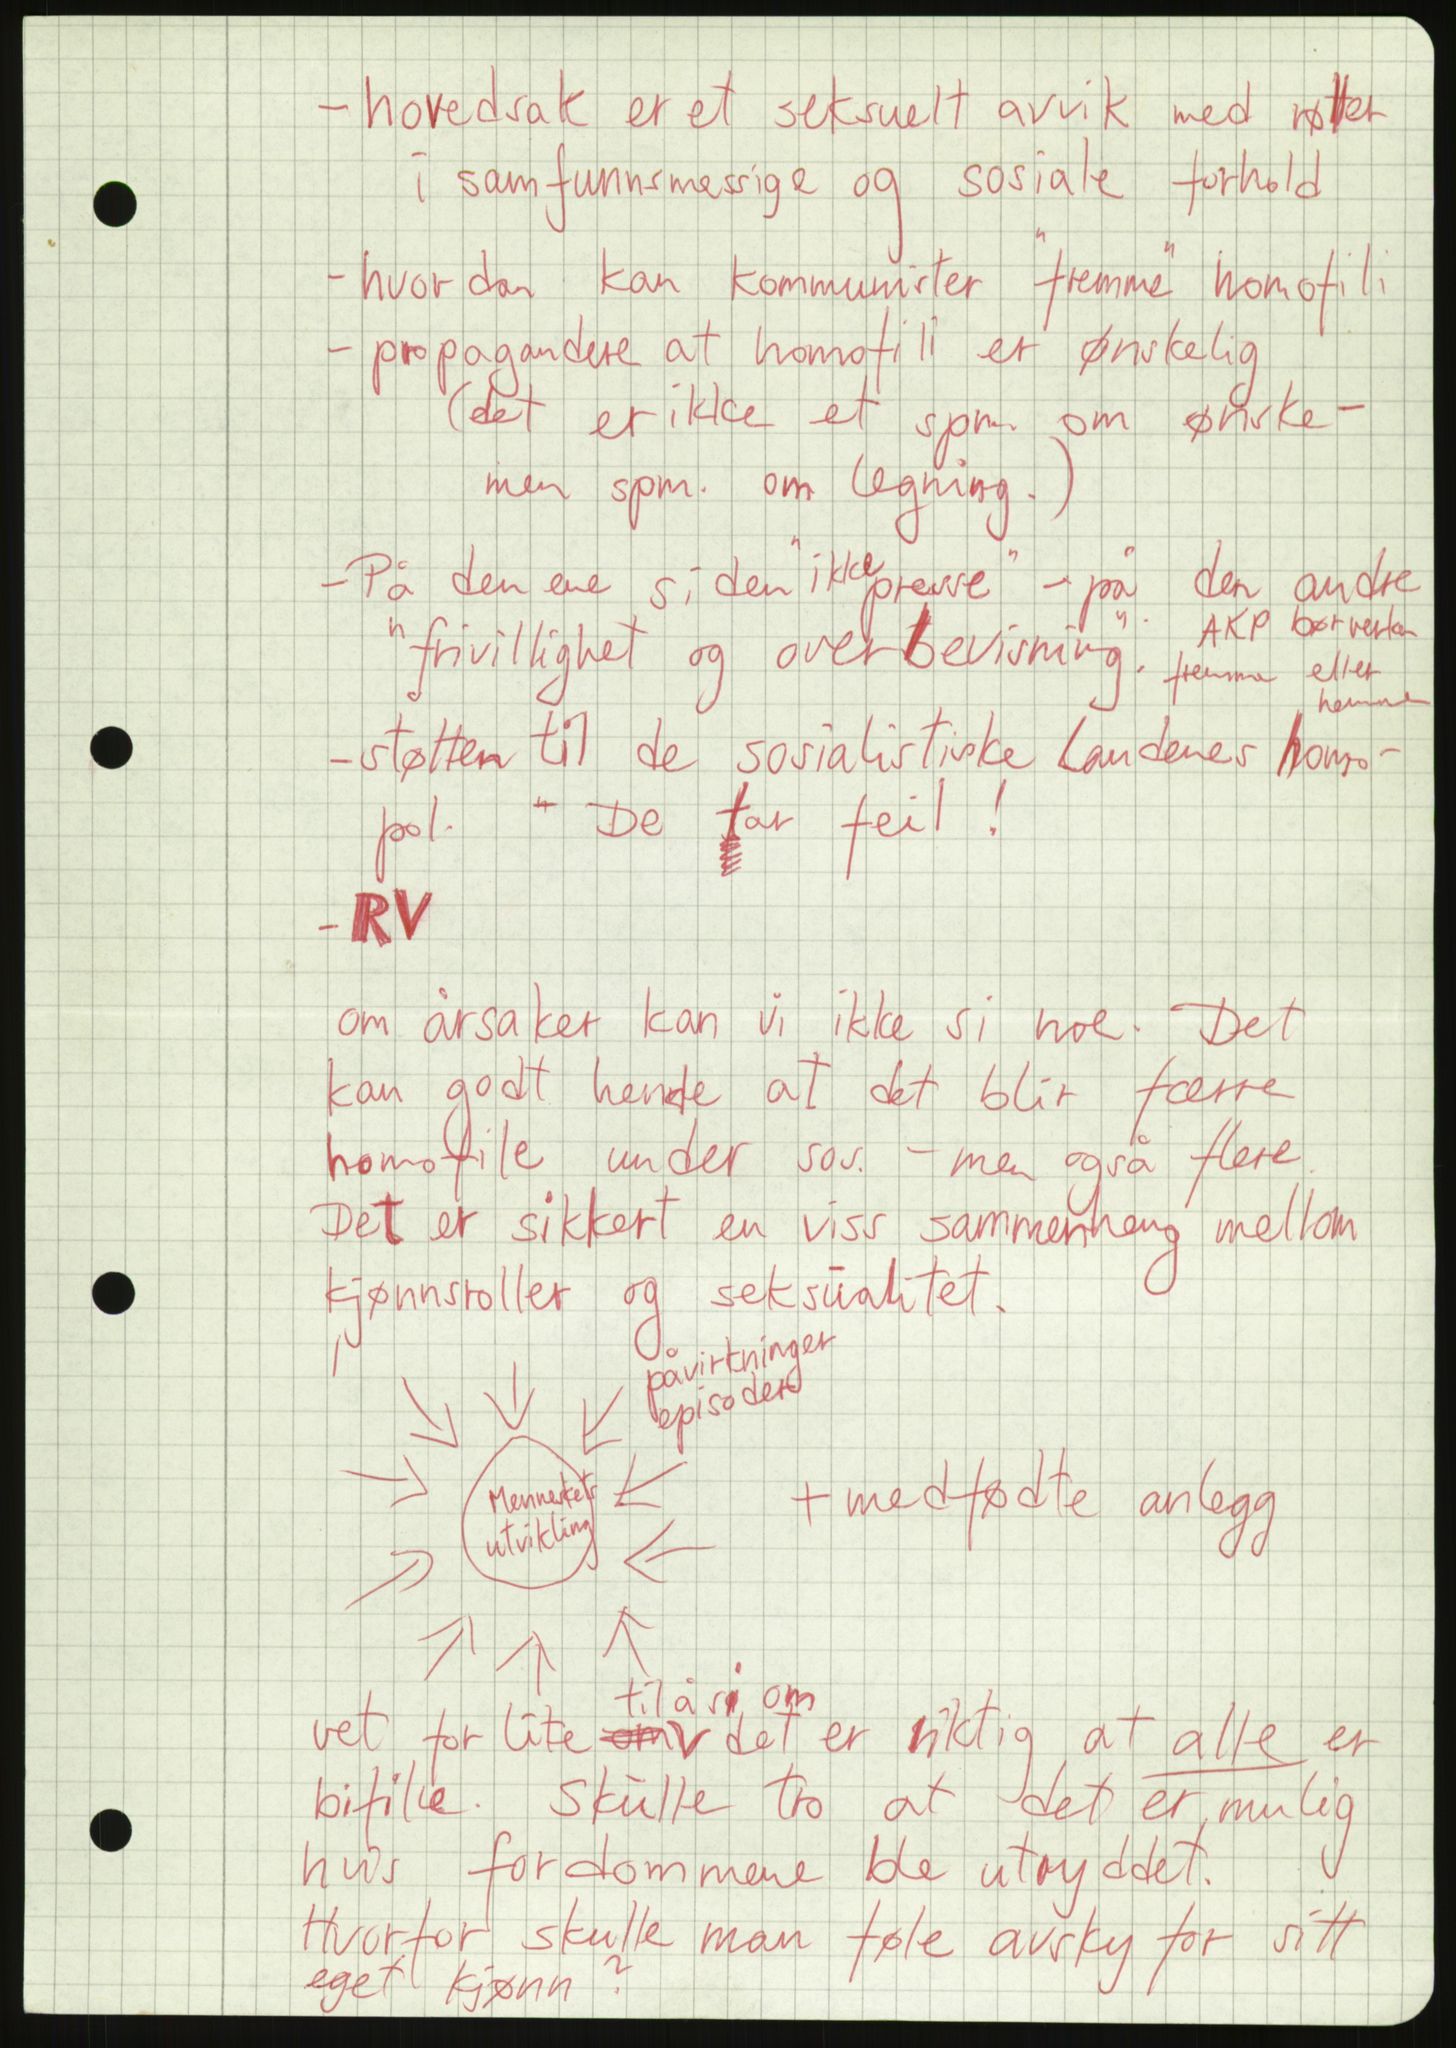 - hovedsak er et seksuelt avvik med røtter
i samfunnsmessige og sosiale forhold
- hvordan kan kommunister "fremme" homofili
- propagandere at homofili er ønskelig
(det er ikke et spm. om ønske -
men spm. om legning.)
- På den ene siden "ikke presse" - på den andre
"frivillighet og overbevisning".
AKP bør verken
fremme eller
hemme
- støtten til de sosialistiske landenes homo-
pol. - De tar feil!
- RV
om årsaker kan vi ikke si noe. Det
kan godt hende at det blir færre
homofile under sos. - men også flere.
Det er sikkert en viss sammenheng mellom
kjønnsroller og seksualitet.
påvirkninger
episoder
Menneskets
utvikling
+ medfødte anlegg
til å si om
vet for lite det er riktig at alle er
bifile. Skulle tro at det er mulig
hvis fordommene ble utryddet.
Hvorfor skulle man føle avsky for sitt
eget kjønn?